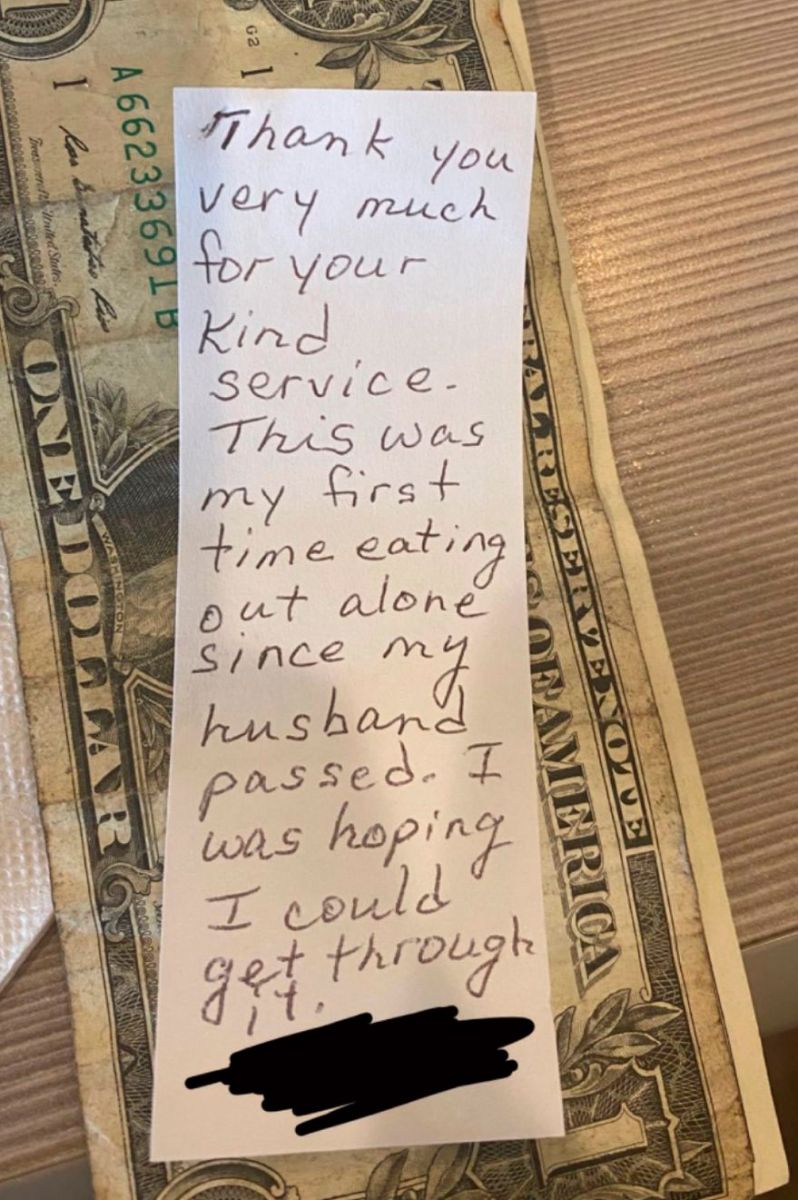 Thank you
very much
for your
Kind
service.
This was
my first
time eating
out alone
since my
husband
passed. I
was hoping
I could
get through
it.
G2
1
A6623369 1 B
1
ONE DOLLAR
WASHINGTON
FEDERAL RESERVE NOTE
OF AMERICA
1